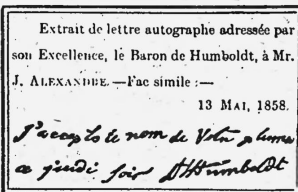 Extrait de lettre autographe adressée par
son Excellence, le Baron de Humboldt, à Mr.
J. ALEXANDRE.—Fac simile :—
13 MAI, 1858.
J'accepte le nom de Votre plume
a jeudi soir AvHumboldt